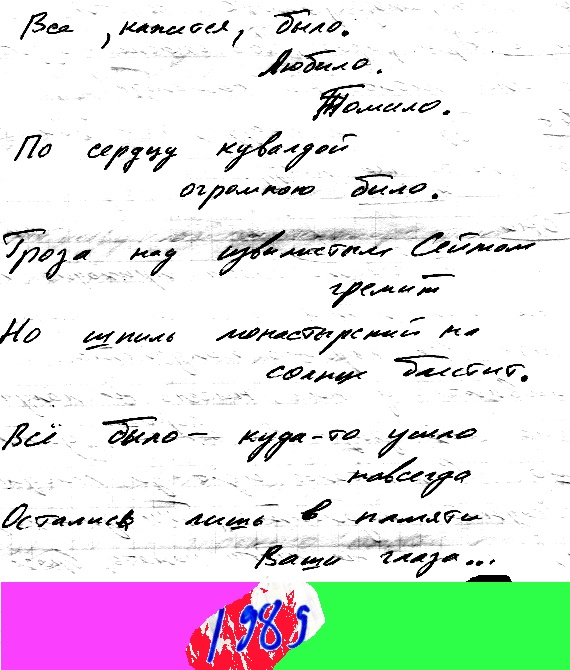 Все, кажется, было.
Любило.
Томило.
По сердцу кувалдой
огромною било.
Гроза над извилистым Сеймом
гремит
Но шпиль монастырский на
солнце блестит.
Всё было – куда-то ушло
навсегда
Остались лишь в памяти
Ваши глаза...
1989